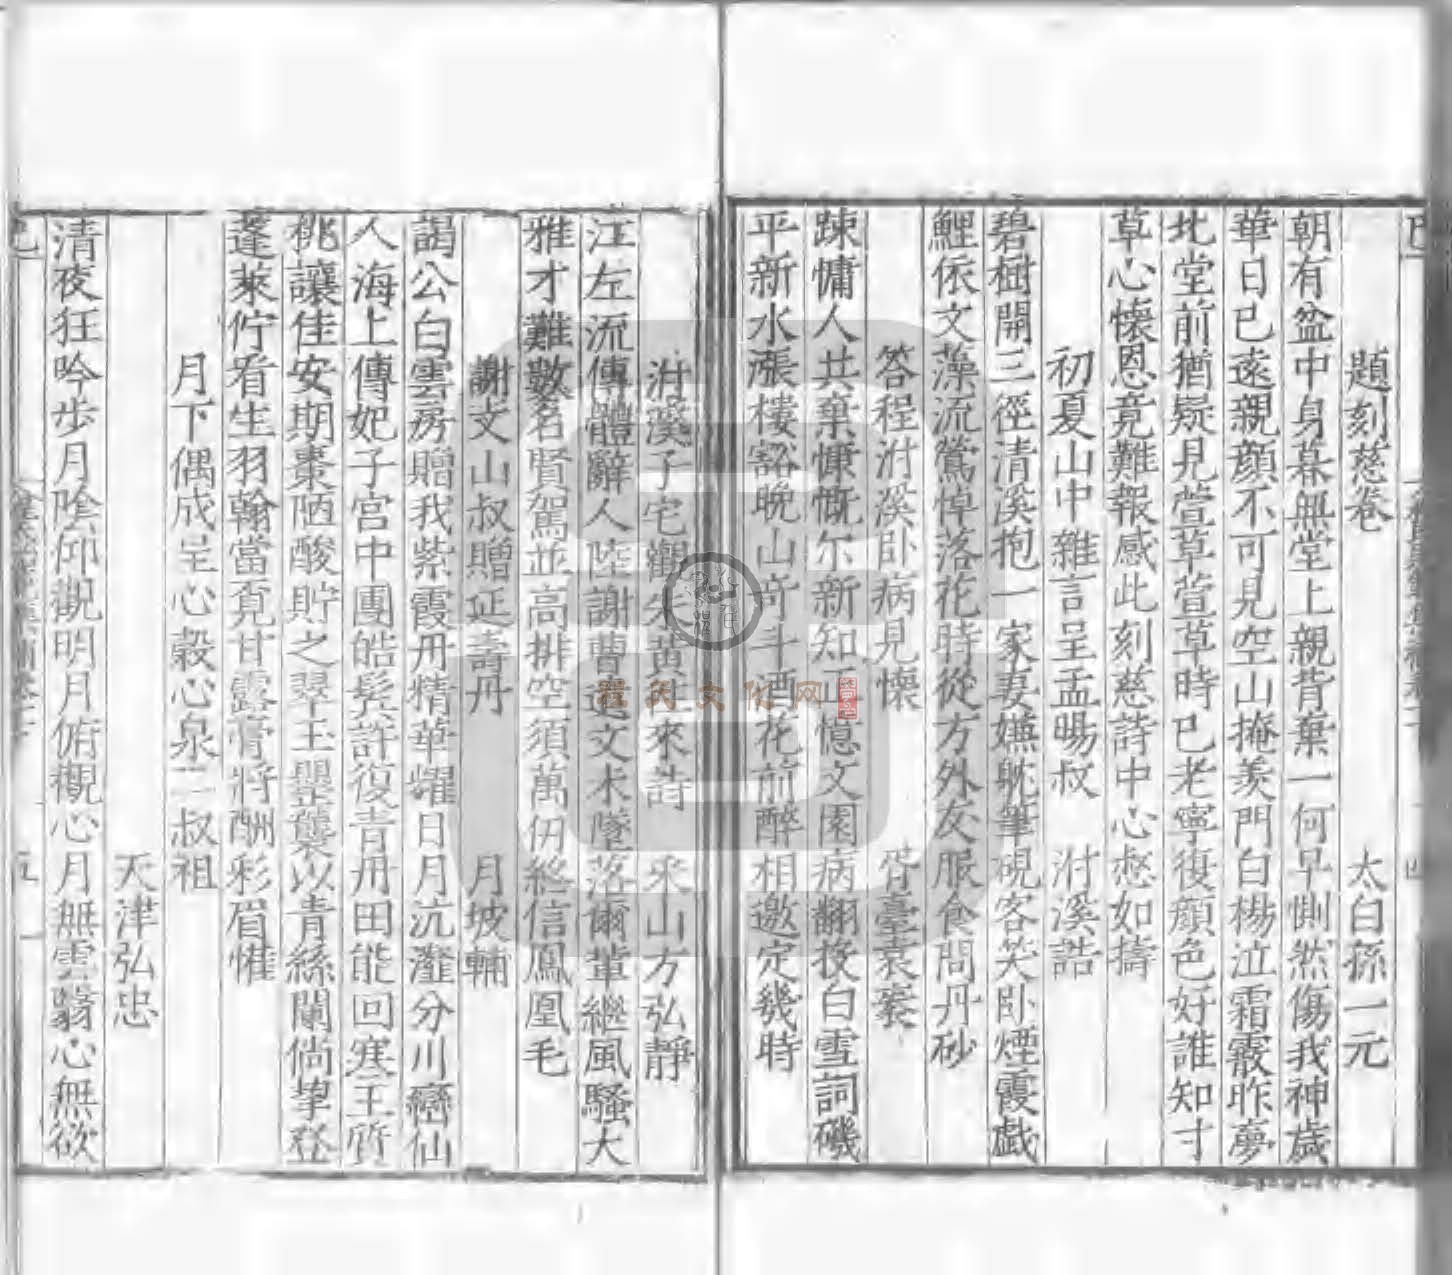 題刻慈卷
太白孫一元
朝有盆中身暮無堂上親背棄一何早惻然傷我神歲
華日已遠親顏不可見空山掩羨門白楊泣霜霰昨夢
北堂前猶疑見萱草萱草時已老寧復顏色好誰知寸
草心懷恩竟難報感此刻慈詩中心愁如擣
初夏山中雜言呈孟暘叔
泭溪誥
碧樹開三徑清溪抱一家妻嫌躭筆硯客笑卧煙霞戯
鯉依文藻流鶯悼落花時從方外友服食問丹砂
答程泭溪卧病見懷
胥臺袁袠
踈慵人共棄慷慨尔新知正憶文園病翻投白雪詞磯
平新水漲樓豁晩山竒斗酒花前醉相邀定幾時
泭溪子宅觀朱黄往來詩
采山方弘靜
江左流傳體辭人陸謝曹遺文未墜落爾輩繼風騷大
雅才難數名賢駕並高排空須萬仞終信鳳凰毛
謝文山叔贈延壽丹
月坡輔
謁公白雲房贈我紫霞丹精華耀日月沆瀣分川巒仙
人海上傳妃子宮中團皓髮許復青丹田能回寒王質
桃讓佳安期棗陋酸貯之翠玉罌襲以青絲闌倘挈登
蓬萊佇看生羽翰當覔甘露膏將酬彩眉惟
月下偶成呈心穀心泉二叔祖
天津弘忠
清夜狂吟步月陰仰觀明月俯觀心月無雲翳心無欲